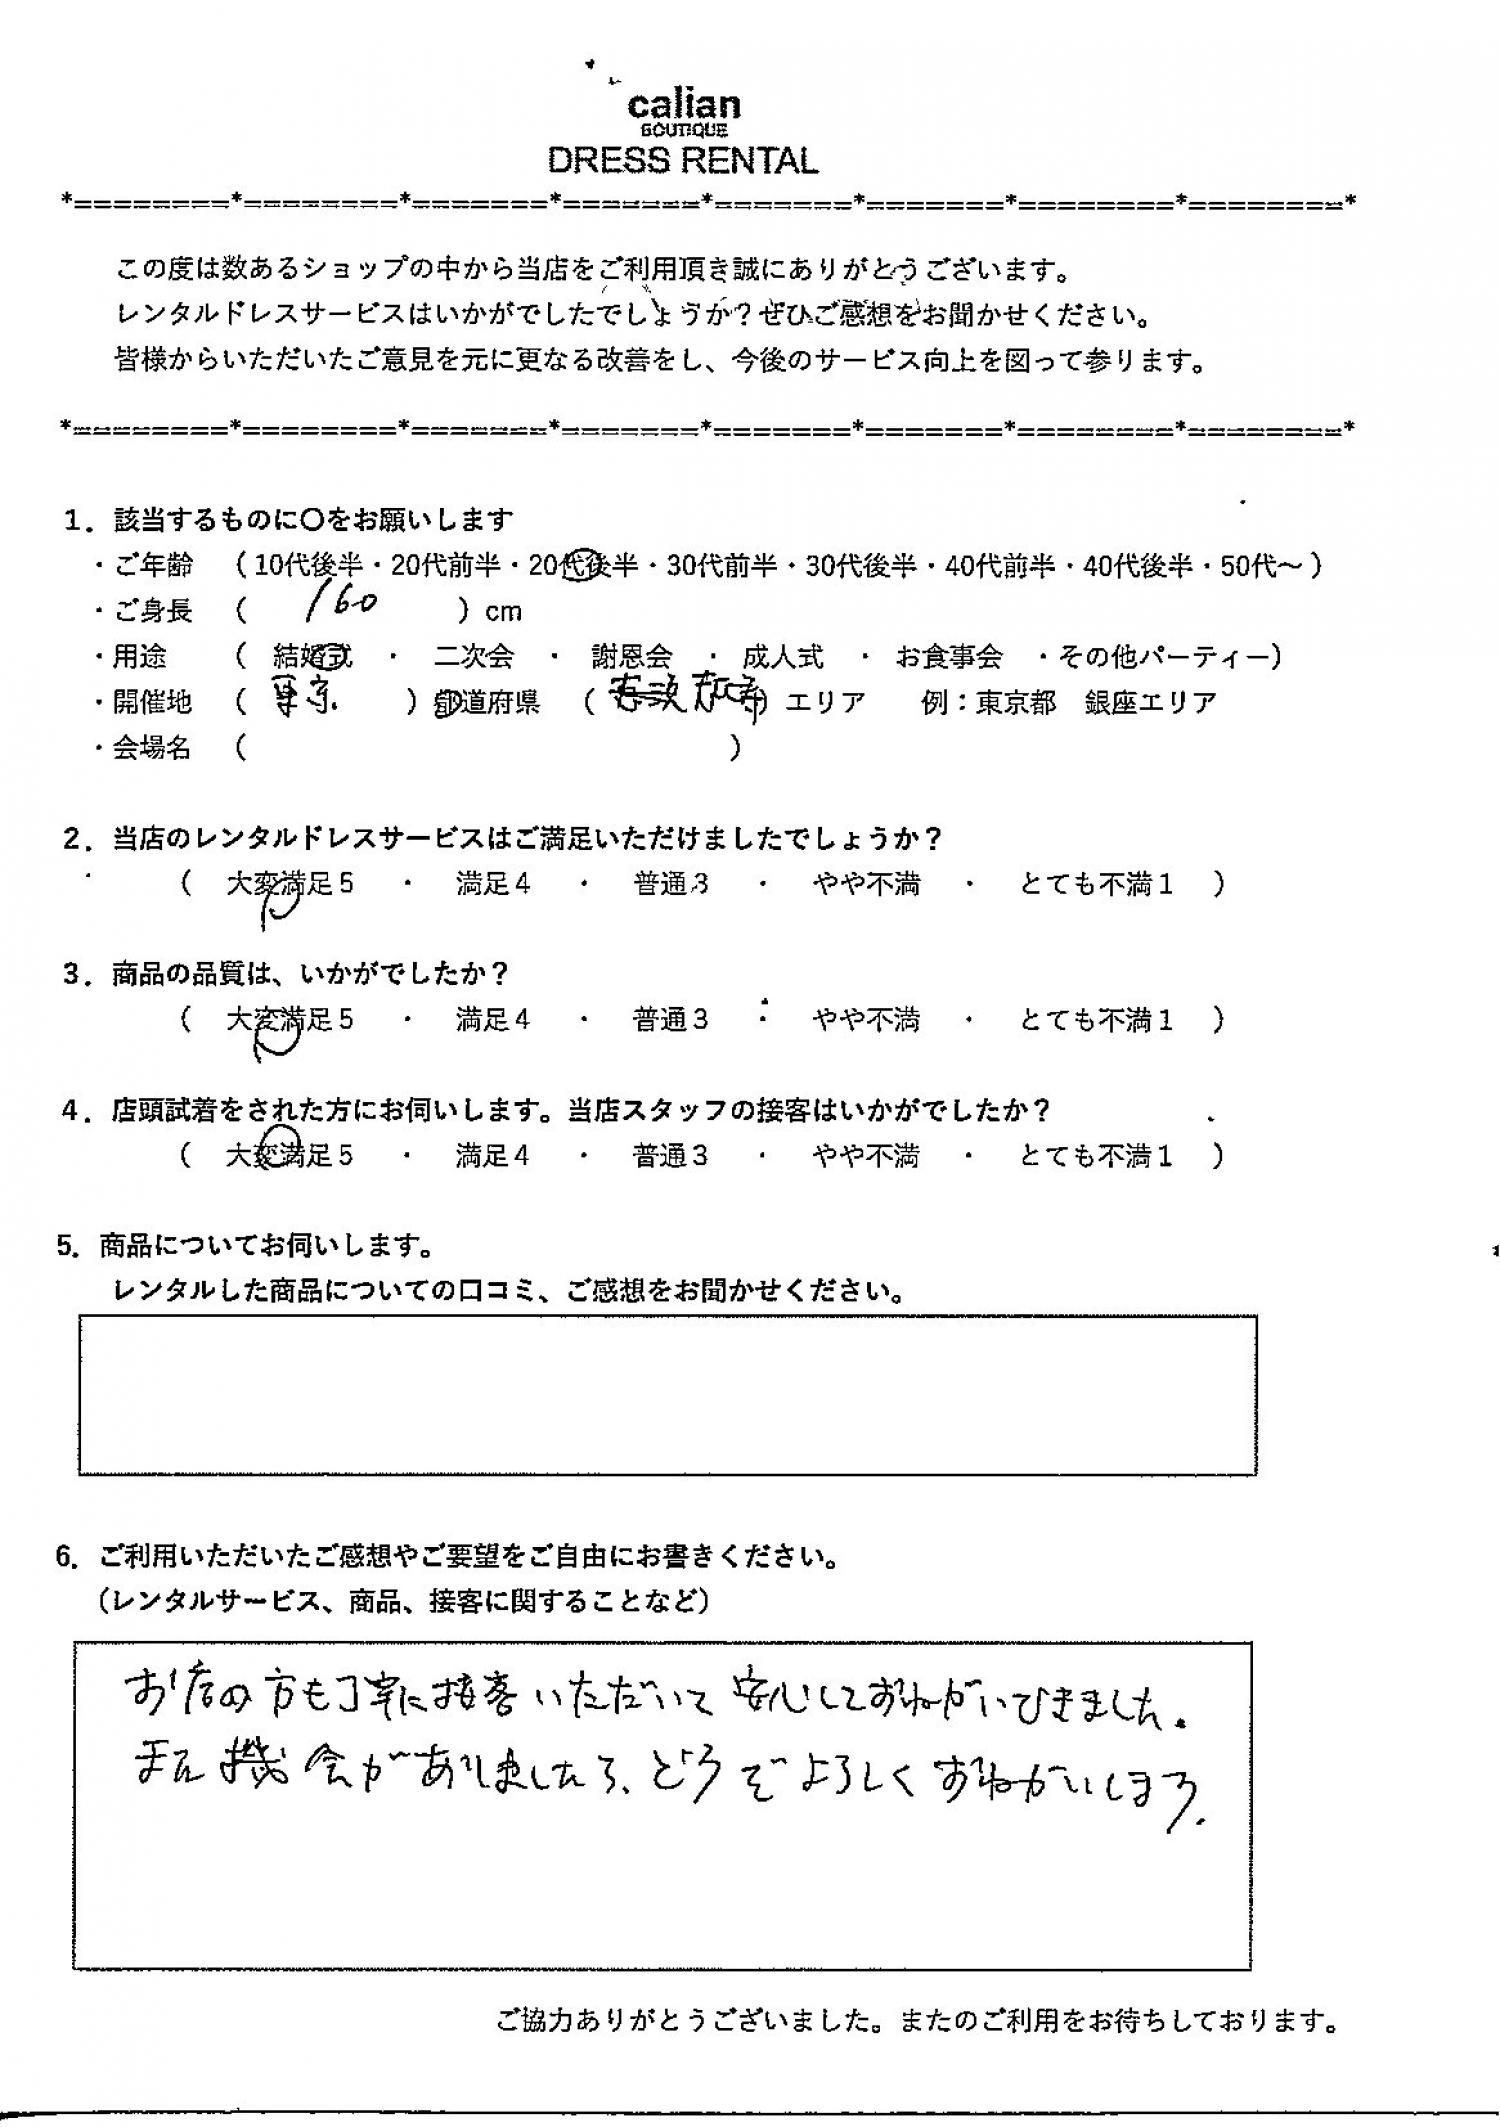 calian
BOUTIQUE
DRESS RENTAL
*========*========*=======*=======*=======*=======*========*========*
この度は数あるショップの中から当店をご利用頂き誠にありがとうございます。
レンタルドレスサービスはいかがでしたでしょうか？ぜひご感想をお聞かせください。
皆様からいただいたご意見を元に更なる改善をし、今後のサービス向上を図って参ります。
*========*========*=======*=======*=======*=======*========*========*
1．該当するものに〇をお願いします
・ご年齢 （10代後半・20代前半・20代後半・30代前半・30代後半・40代前半・40代後半・50代～）
・ご身長 （ 160 ）cm
・用途 （ 結婚式 ・ 二次会 ・ 謝恩会 ・ 成人式 ・ お食事会 ・その他パーティー）
・開催地 （ 東京 ）都道府県 （ ）エリア 例：東京都 銀座エリア
・会場名 （ ）
2．当店のレンタルドレスサービスはご満足いただけましたでしょうか？
（ 大変満足５ ・ 満足４ ・ 普通３ ・ やや不満 ・ とても不満１ ）
3．商品の品質は、いかがでしたか？
（ 大変満足５ ・ 満足４ ・ 普通３ ・ やや不満 ・ とても不満１ ）
4．店頭試着をされた方にお伺いします。当店スタッフの接客はいかがでしたか？
（ 大変満足５ ・ 満足４ ・ 普通３ ・ やや不満 ・ とても不満１ ）
5．商品についてお伺いします。
レンタルした商品についての口コミ、ご感想をお聞かせください。
6．ご利用いただいたご感想やご要望をご自由にお書きください。
（レンタルサービス、商品、接客に関することなど）
お店の方も丁寧に接客いただいて安心しておねがいできました。
また機会がありましたら、どうぞよろしくおねがいします.
ご協力ありがとうございました。またのご利用をお待ちしております。